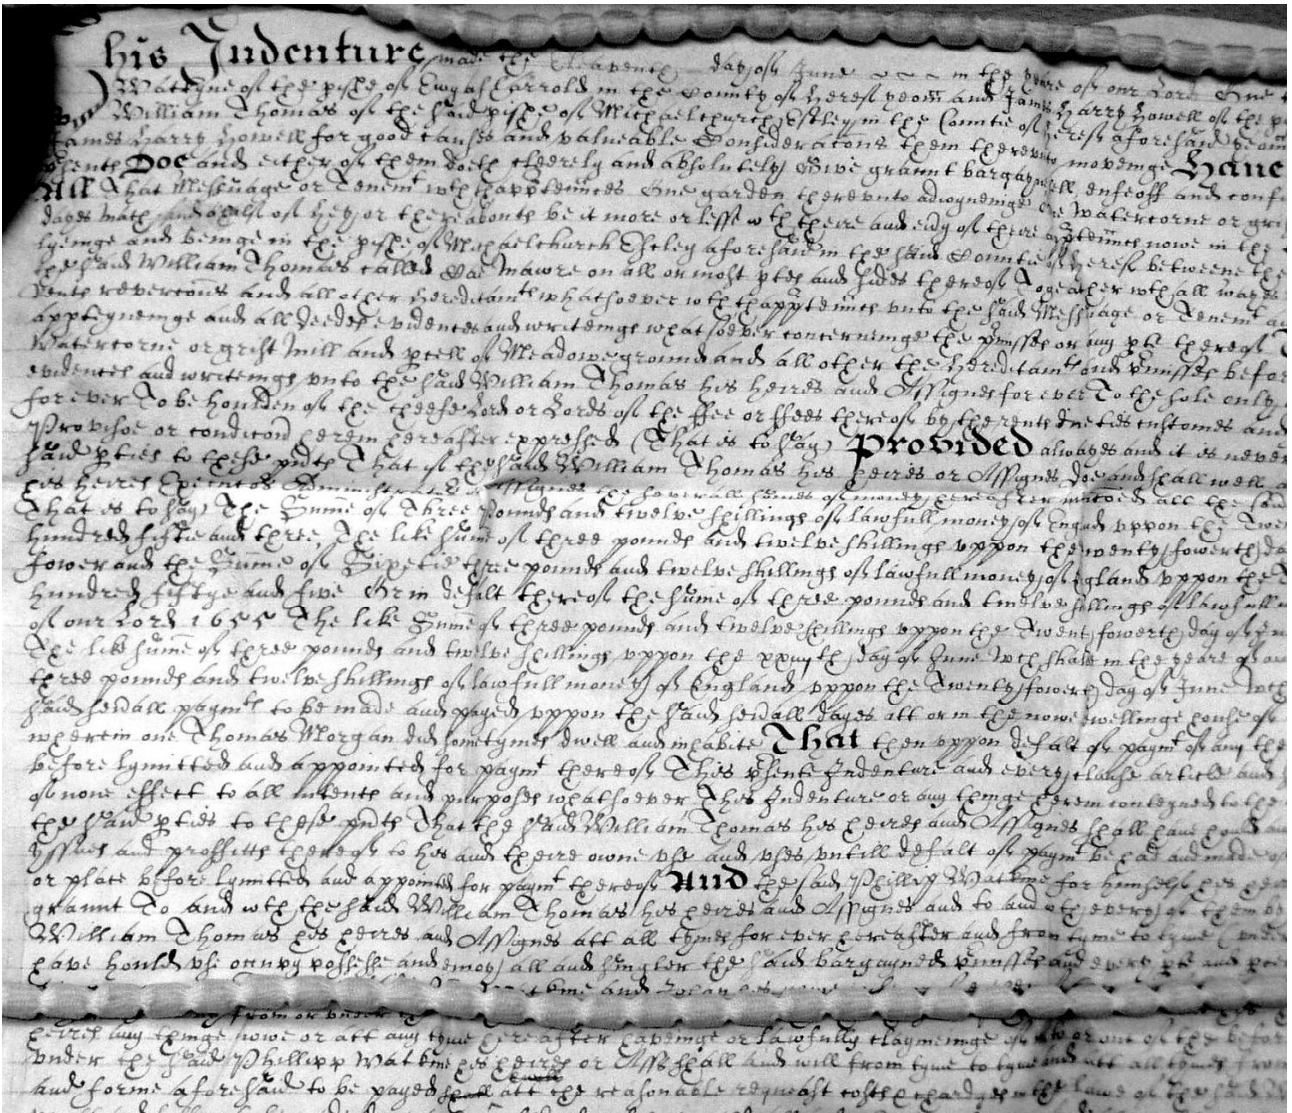 his Indenture made the Eleaventh day of June in the yeare of our Lord One
Watkyne of the pishe of Ewyas Harrold in the County of Heref yeom and James Harry Howell of the
William Thomas of the said pishe of Michaelchurch Estley in the Countie of Heref aforesaid yeom
James Harry Howell for good causes and valueable Consideracons them thereunto moveinge Have
psents Doe and either of them doeth cleerely and absolutely Give graunt bargayne sell enfeoff and conf
All That Messuage or Tenemt wth thapptennces One garden thereunto adioyneinge One Watercorne or gris
dayes math and a halfe of hey or thereabouth be it more or lesse wth theire and evy of theire apptennces nowe in the
lyeinge and beinge in the pishe of Michaelchurch Estley aforesaid in the said Countie of Heref betweene the
the said William Thomas called Cae Mawre on all or most ptes and sides thereof Togeather wth all wayes
rents revercons and all other hereditamts whatsoever wth thapptennces unto the said Messuage or Tenemt
apperteyneinge and all deedes evidences and writeings whatsoever concerneinge the pmisses or any pte thereof
Watercorne or grist Mill and pcell of Meadowe ground and all other the hereditamts and pmisses befor
evidences and writeings unto the said William Thomas his heires and Assignes for ever To the sole only
for ever To be houlden of the cheefe Lord or Lords of the ffee or ffees thereof by the rents dueties customes and
Provisoe or condicon herein hereafter expressed (That is to say) Provided alwayes and it is never
said pties to these pnts That if the said William Thomas his heires or Assignes doe and shall well
his heires Executors Administrators or Assignes the severall sumes of money hereafter menconed all the said
That is to say The Sume of Three Pounds and twelve shillings of lawfull money of England uppon the Twe
hundred fiftie and three, The like sume of three pounds and twelve shillings uppon the twenty fowerth da
fower and the Sume of Sixetie three pounds and twelve shillings of lawfull money of England uppon the T
hundred fiftye and five Or in defalt thereof the sume of three pounds and twelve shillings of lawfull
of our Lord 1655 The like Sume of three pounds and twelve shillings uppon the Twenty fowerth day of Ju
The like sume of three pounds and twelve shillings uppon the xxiiijth day of June wch shalbe in the yeare of our
three pounds and twelve shillings of lawfull money of England uppon the Twenty fowerth day of June wch
said sevall paymts to be made and payed uppon the said sevall dayes att or in the nowe dwellinge house of
wherein one Thomas Morgan did sometymes dwell and inhabite That then uppon defalt of paymt of any the
before lymitted and appointed for paymt thereof This psente Indenture and every clause article and
of none effect to all intents and purposes whatsoever This Indenture or any thinge herein conteyned to the
the said pties to these pnts That the said William Thomas his heires and Assignes shall have hould and
yssues and proffitts thereof to his and theire owne use and uses untill defalt of paymt be had and made of
or place before lymitted and appointed for paymt thereof And the said Phillip Watkine for himselfe his hei
graunt To and wth the said William Thomas his heires and Assignes and to and wth every of them by
William Thomas his heires and Assignes att all tymes for ever hereafter and from tyme to tyme
have hould use occupy possesse and enioy all and singler the said bargayned pmisses and every pte and pcell
from or under
heires any thinge nowe or att any tyme hereafter haveinge or lawfully claymeinge of or one of the befor
under the said Phillipp Watkine his heires or Assignes shall and will from tyme to tyme and att all tymes from
and forme aforesaid to be payed shall att the reasonable request costs chardges in the lawe of the said